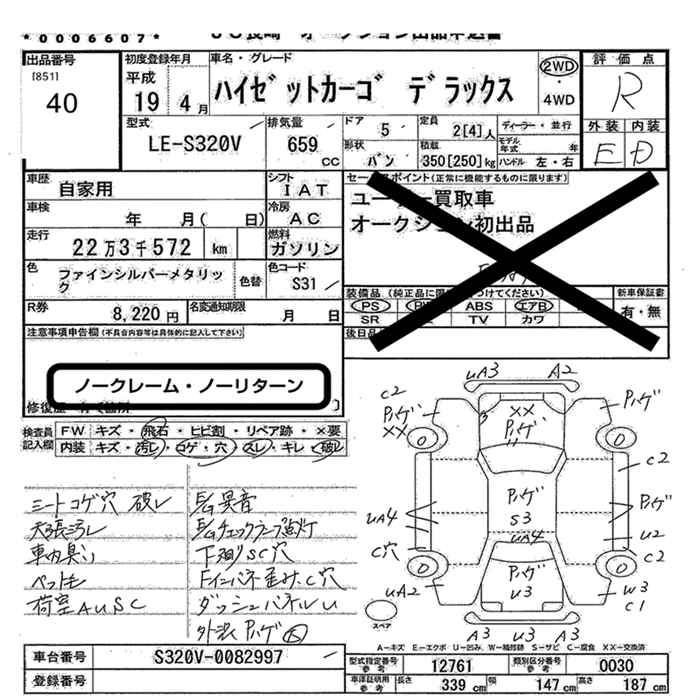 *0006607*
出品番号
[851]
40
初度登録年月
平成
19 4月
車名・グレード
ハイゼットカーゴ デラックス
2WD
4WD
評価点
R
外装 内装
E D
型式
LE-S320V
排気量
659
CC
ドア
5
形状
バン
定員
2[4]人
積載
350[250]kg
ディーラー・並行
モデル年式 年
ハンドル 左・右
車歴
自家用
シフト
IAT
車検
年 月( 日)
冷房
AC
走行
22万3千572 km
燃料
ガソリン
色
ファインシルバーメタリック
色替
色コード
S31
R券
8,220円
名変通知期限
月 日
セールスポイント(正常に機能するものに限ります)
ユーザー買取車
オークション初出品
装備品
PS
ABS
エアB
SR
TV
カワ
新車保証書
有・無
注意事項申告欄(不具合内容等は具体的に記入して下さい)
ノークレーム・ノーリターン
検査員記入欄
FW キズ・飛石・ヒビ割・リペア跡・×要
内装 キズ・汚レ・コゲ・穴・スレ・キレ・破レ
シートコゲ穴 破レ
天張汚レ
車内臭い
ペット毛
荷室AUSC
異音
チェックランプ点灯
下廻りSC穴
Fインパネ歪み.C穴
ダッシュパネルU
外装ハゲ大
UA3
A2
C2
ハゲ
XX
XX
ハゲ
ハゲ
C2
UA4
ハゲ
S3
UA4
ハゲ
U2
C穴
C2
UA2
ハゲ
U3
W3
C1
A3
U3
A3
スペア
A-キズ E-エクボ U-凹み W-補修跡 S-サビ C-腐食 XX-交換済
車台番号
S320V-0082997
登録番号
型式指定番号参考
12761
類別区分番号参考
0030
車庫証明用参考
長さ 339 cm
幅 147 cm
高さ 187 cm